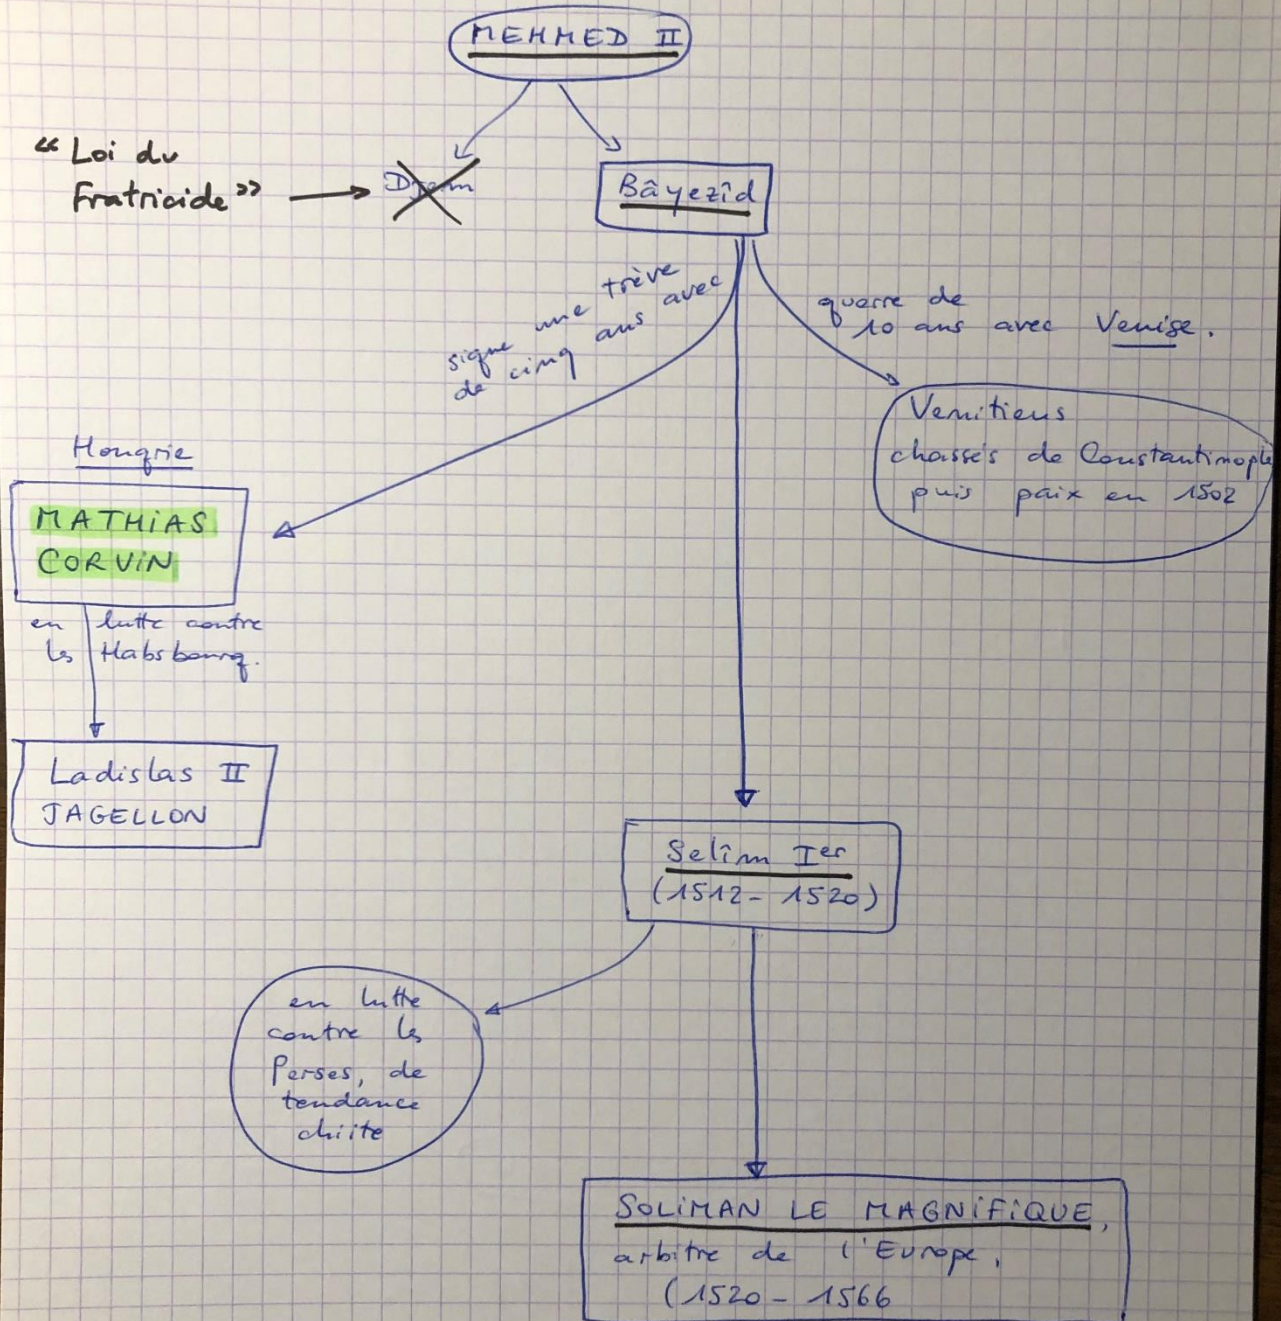 MEHMED II
“Loi du
Fratricide”
Djem
Bâyezîd
signe une trève
de cinq ans avec
guerre de
10 ans avec Venise.
Venitiens
chassés de Constantinople
puis paix en 1502
Hongrie
MATHIAS
CORVIN
en lutte contre
les Habsbourg.
Ladislas II
JAGELLON
Selîm Ier
(1512- 1520)
en lutte
contre les
Perses, de
tendance
chiite
SOLIMAN LE MAGNIFIQUE,
arbitre de l'Europe,
(1520- 1566